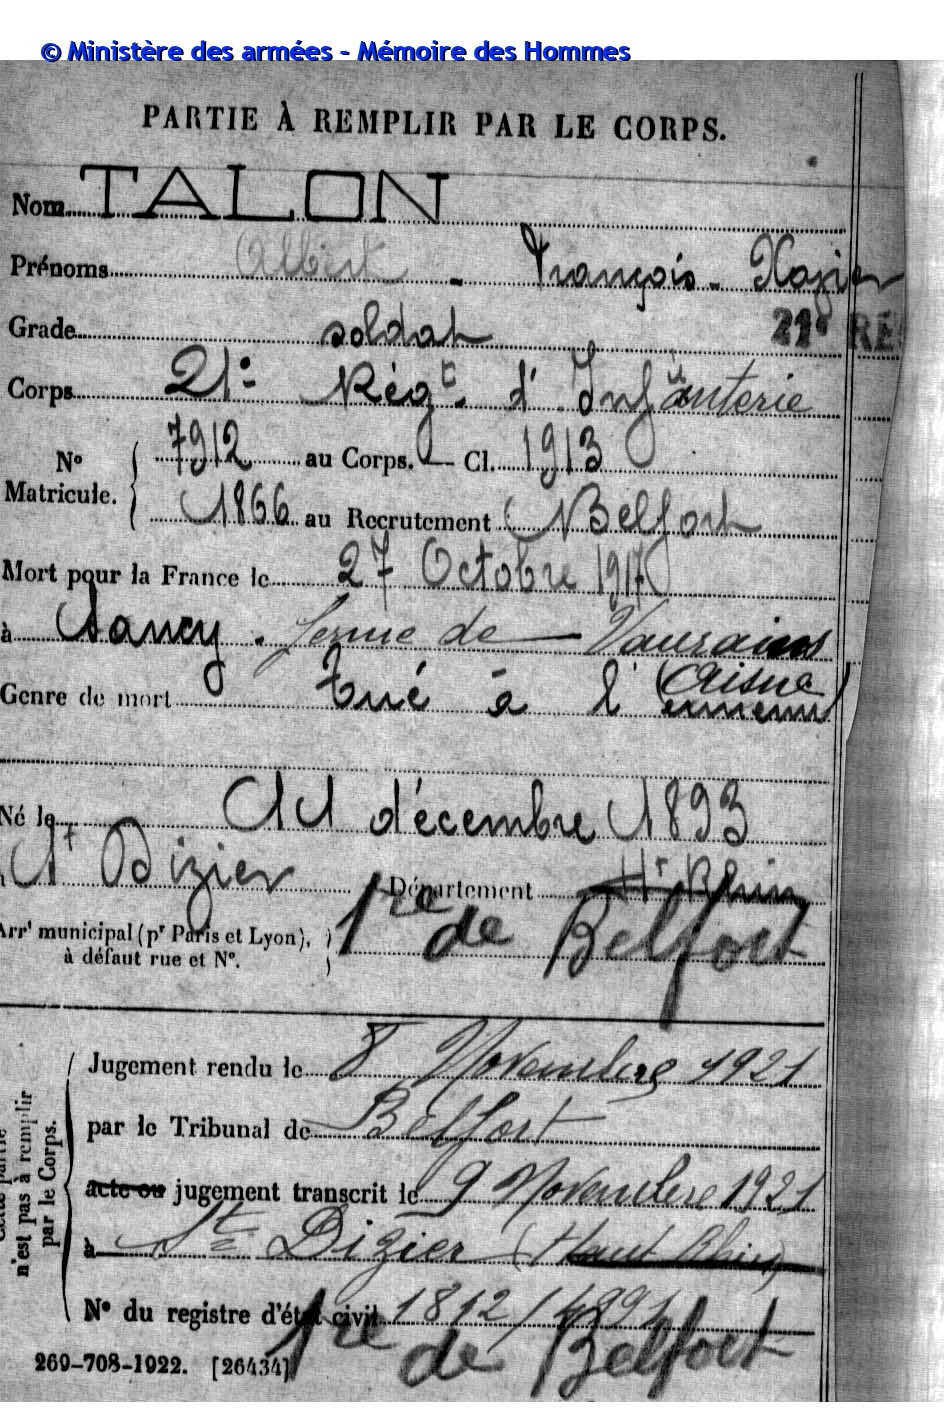 © Ministère des armées - Mémoire des Hommes
PARTIE À REMPLIR PAR LE CORPS.
Nom TALON
Prénoms Albert - François - Xavier
Grade soldat
21e RÉG
Corps 21e Régt d'Infanterie
N° Matricule. 7912 au Corps. — Cl. 1913
1866 au Recrutement Belfort
Mort pour la France le 27 Octobre 1917
à Nancy - ferme de Vaurains
(Aisne)
Genre de mort tué à l'ennemi
Né le 11 décembre 1893
à St Dizier Département Ht Rhin
Arrt municipal (pr Paris et Lyon), à défaut rue et N°. 1re de Belfort
Cette partie n'est pas à remplir par le Corps.
Jugement rendu le 8 Novembre 1921
par le Tribunal de Belfort
acte ou jugement transcrit le 9 Novembre 1921
à St Dizier (Haut Rhin)
N° du registre d'état civil 1812/
1re de Belfort
269-708-1922. [26434]